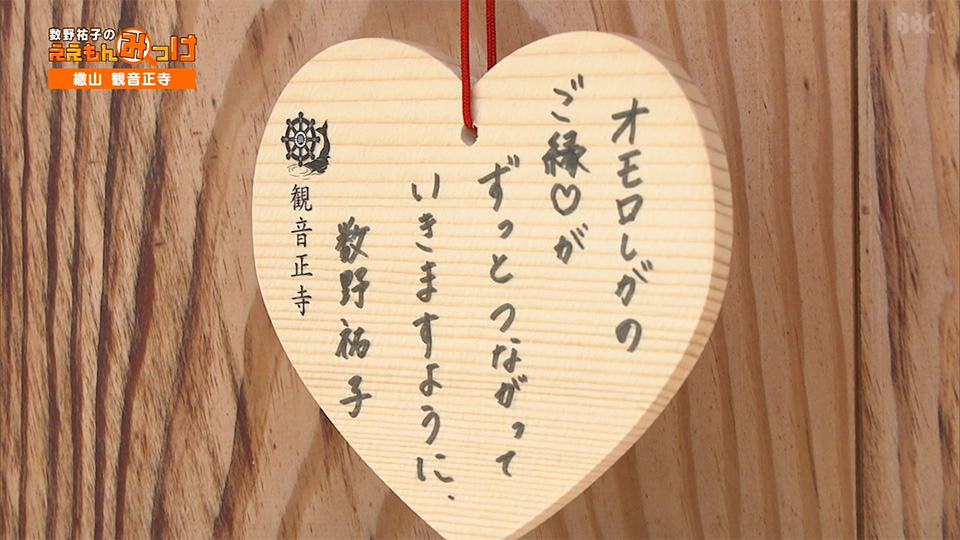 数野祐子の
ええもんみっけ
繖山 観音正寺
BBC
オモロしがの
ご縁♡が
ずっとつながって
いきますように、
数野祐子
観音正寺